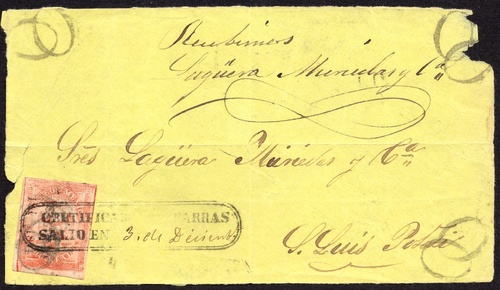 Recibimos
Lagüera Muriedas y Cª
Sres Lagüera Muriedas y Cª
CERTIFICADO PARRAS
SALIO EN 3. de Diciembe
S. Luis Potosi